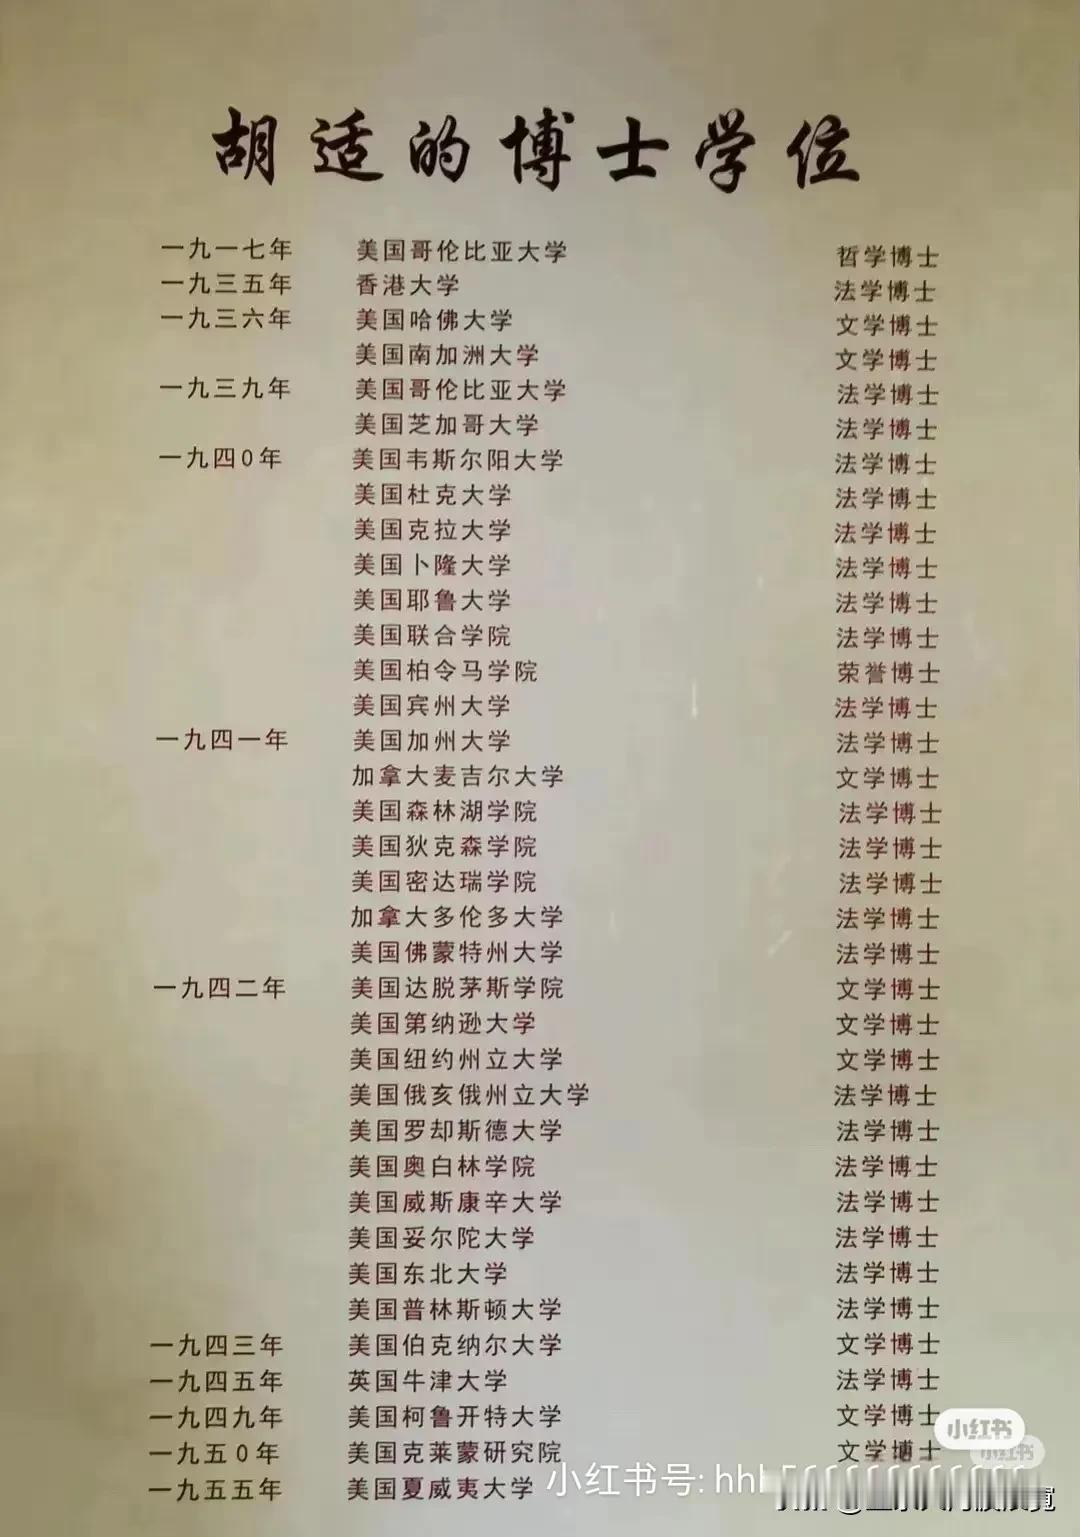 胡适的博士学位
一九一七年 美国哥伦比亚大学 哲学博士
一九三五年 香港大学 法学博士
一九三六年 美国哈佛大学 文学博士
美国南加洲大学 文学博士
一九三九年 美国哥伦比亚大学 法学博士
美国芝加哥大学 法学博士
一九四0年 美国韦斯尔阳大学 法学博士
美国杜克大学 法学博士
美国克拉大学 法学博士
美国卜隆大学 法学博士
美国耶鲁大学 法学博士
美国联合学院 法学博士
美国柏令马学院 荣誉博士
美国宾州大学 法学博士
一九四一年 美国加州大学 法学博士
加拿大麦吉尔大学 文学博士
美国森林湖学院 法学博士
美国狄克森学院 法学博士
美国密达瑞学院 法学博士
加拿大多伦多大学 法学博士
美国佛蒙特州大学 法学博士
一九四二年 美国达脱茅斯学院 文学博士
美国第纳逊大学 文学博士
美国纽约州立大学 文学博士
美国俄亥俄州立大学 法学博士
美国罗却斯德大学 法学博士
美国奥白林学院 法学博士
美国威斯康辛大学 法学博士
美国妥尔陀大学 法学博士
美国东北大学 法学博士
美国普林斯顿大学 法学博士
一九四三年 美国伯克纳尔大学 文学博士
一九四五年 英国牛津大学 法学博士
一九四九年 美国柯鲁开特大学 文学博士
小红书
一九五0年 美国克莱蒙研究院 文学博士
小红书
一九五五年 美国夏威夷大学
小红书号: hhl